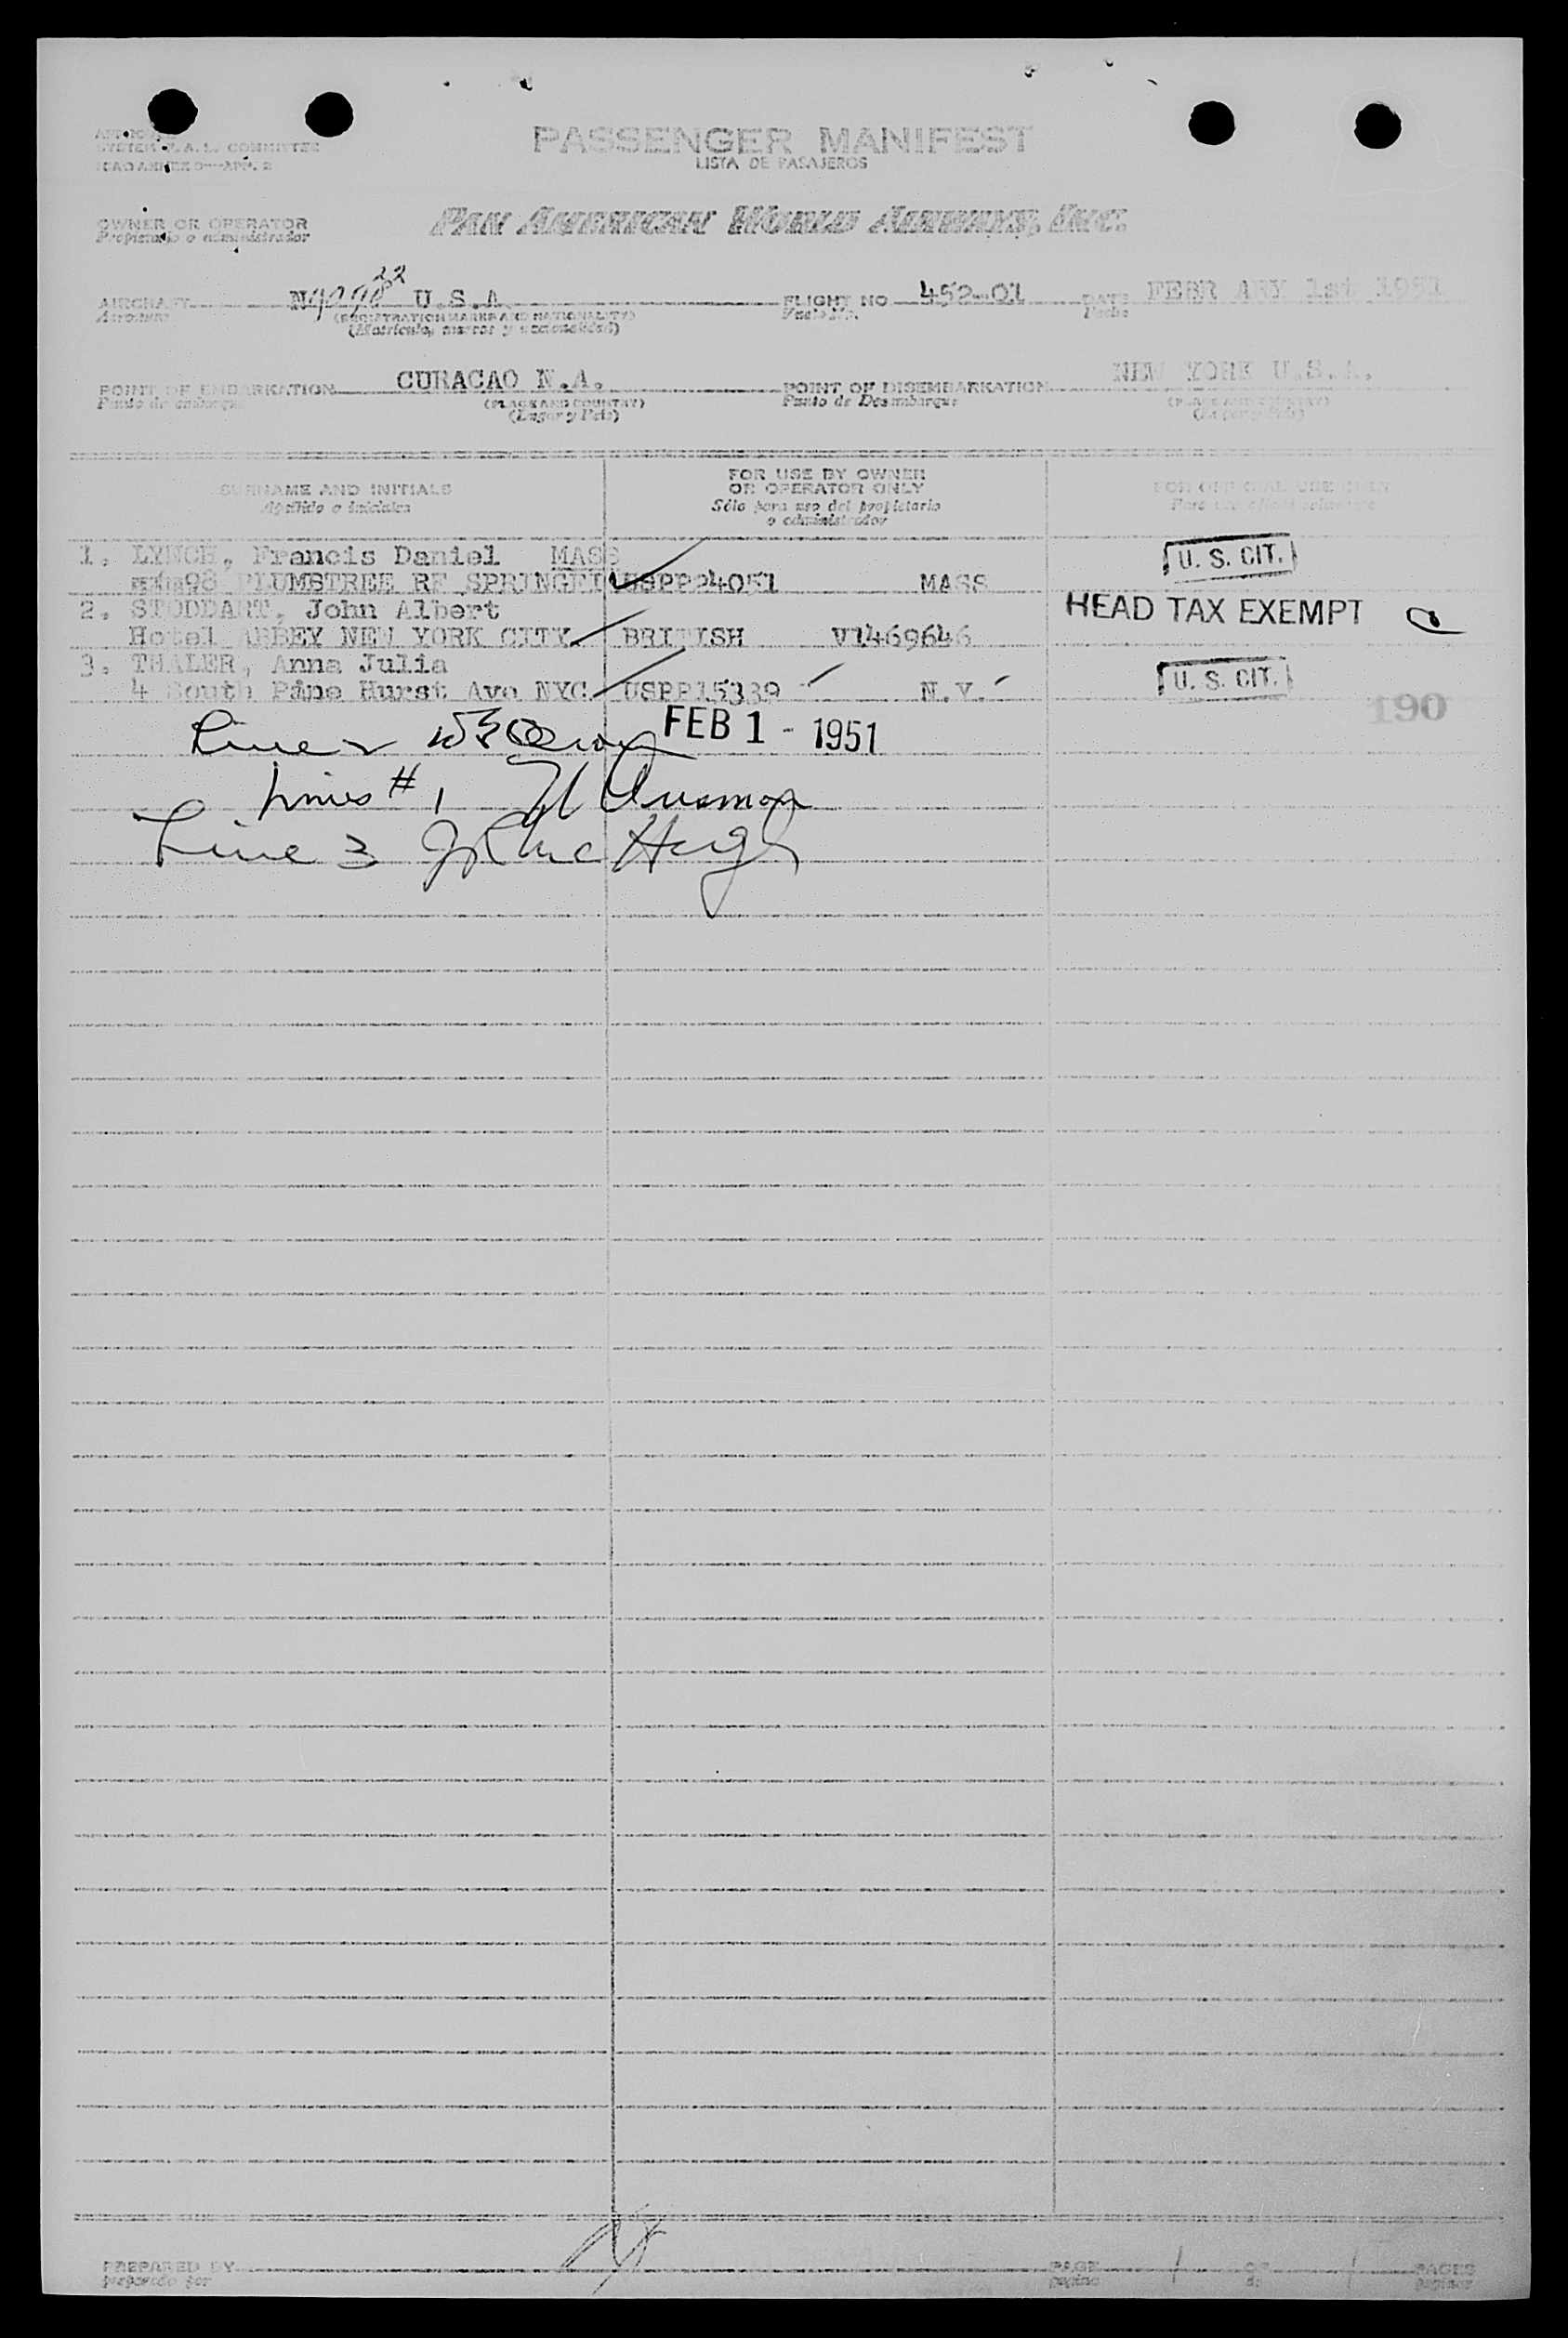 PASSENGER MANIFEST
LISTA DE PASAJEROS
SYSTEM F.A.L. COMMITTEE
ICAO ANNEX 9—APP. 2
OWNER OR OPERATOR
Propietario o administrador
PAN AMERICAN WORLD AIRWAYS, INC.
AIRCRAFT U.S.A. FLIGHT NO 452-01 DATE FEBR ARY 1st 1951
Aeronave (REGISTRATION MARKS AND NATIONALITY) Vuelo No. Fecha
(Matricula, marcas y nacionalidad)
POINT OF EMBARKATION CURACAO N.A. POINT OF DISEMBARKATION NEW YORK U.S.A.
Punto de embarque (PLACE AND COUNTRY) Punto de Desembarque (PLACE AND COUNTRY)
(Lugar y Pais) (Lugar y Pais)
SURNAME AND INITIALS FOR USE BY OWNER OR OPERATOR ONLY FOR OFFICIAL USE ONLY
Apellido e iniciales Sólo para uso del propietario o administrador Para uso oficial solamente
1. LYNCH, Francis Daniel MASS U. S. CIT.
98 PLUMBTREE RF SPRINGFI USPP24051 MASS
2. STODDART, John Albert HEAD TAX EXEMPT
Hotel ABBEY NEW YORK CITY BRITISH V1469646
3. THALER, Anna Julia U. S. CIT.
4 South Pine Hurst Ave NYC USPP15339 N.Y.
190
Line 2 FEB 1 - 1951
Lines # 1
Line 3
PREPARED BY PAGE 1 OF 1 PAGES
preparado por pagina de paginas